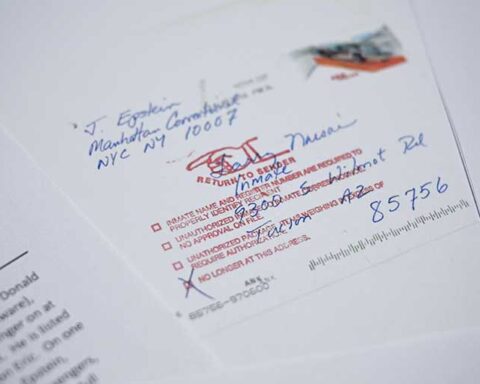 J. Epstein
Manhattan Correctional
NYC NY 10007
Larry Nassar
Inmate
9300 S Wilmot Rd
Tucson AZ
85756
RETURN TO SENDER
INMATE NAME AND REGISTER NUMBER ARE REQUIRED TO
PROPERLY IDENTIFY RECIPIENT
UNAUTHORIZED
NO APPROVAL ON FILE
UNAUTHORIZED PACKAGE WEIGHING OF
REQUIRE AUTHORIZATION
X NO LONGER AT THIS ADDRESS.
ANK
85756-970600
Donald
ware),
enger on at
. He is listed
on Eric. On one
Epstein,
engers,